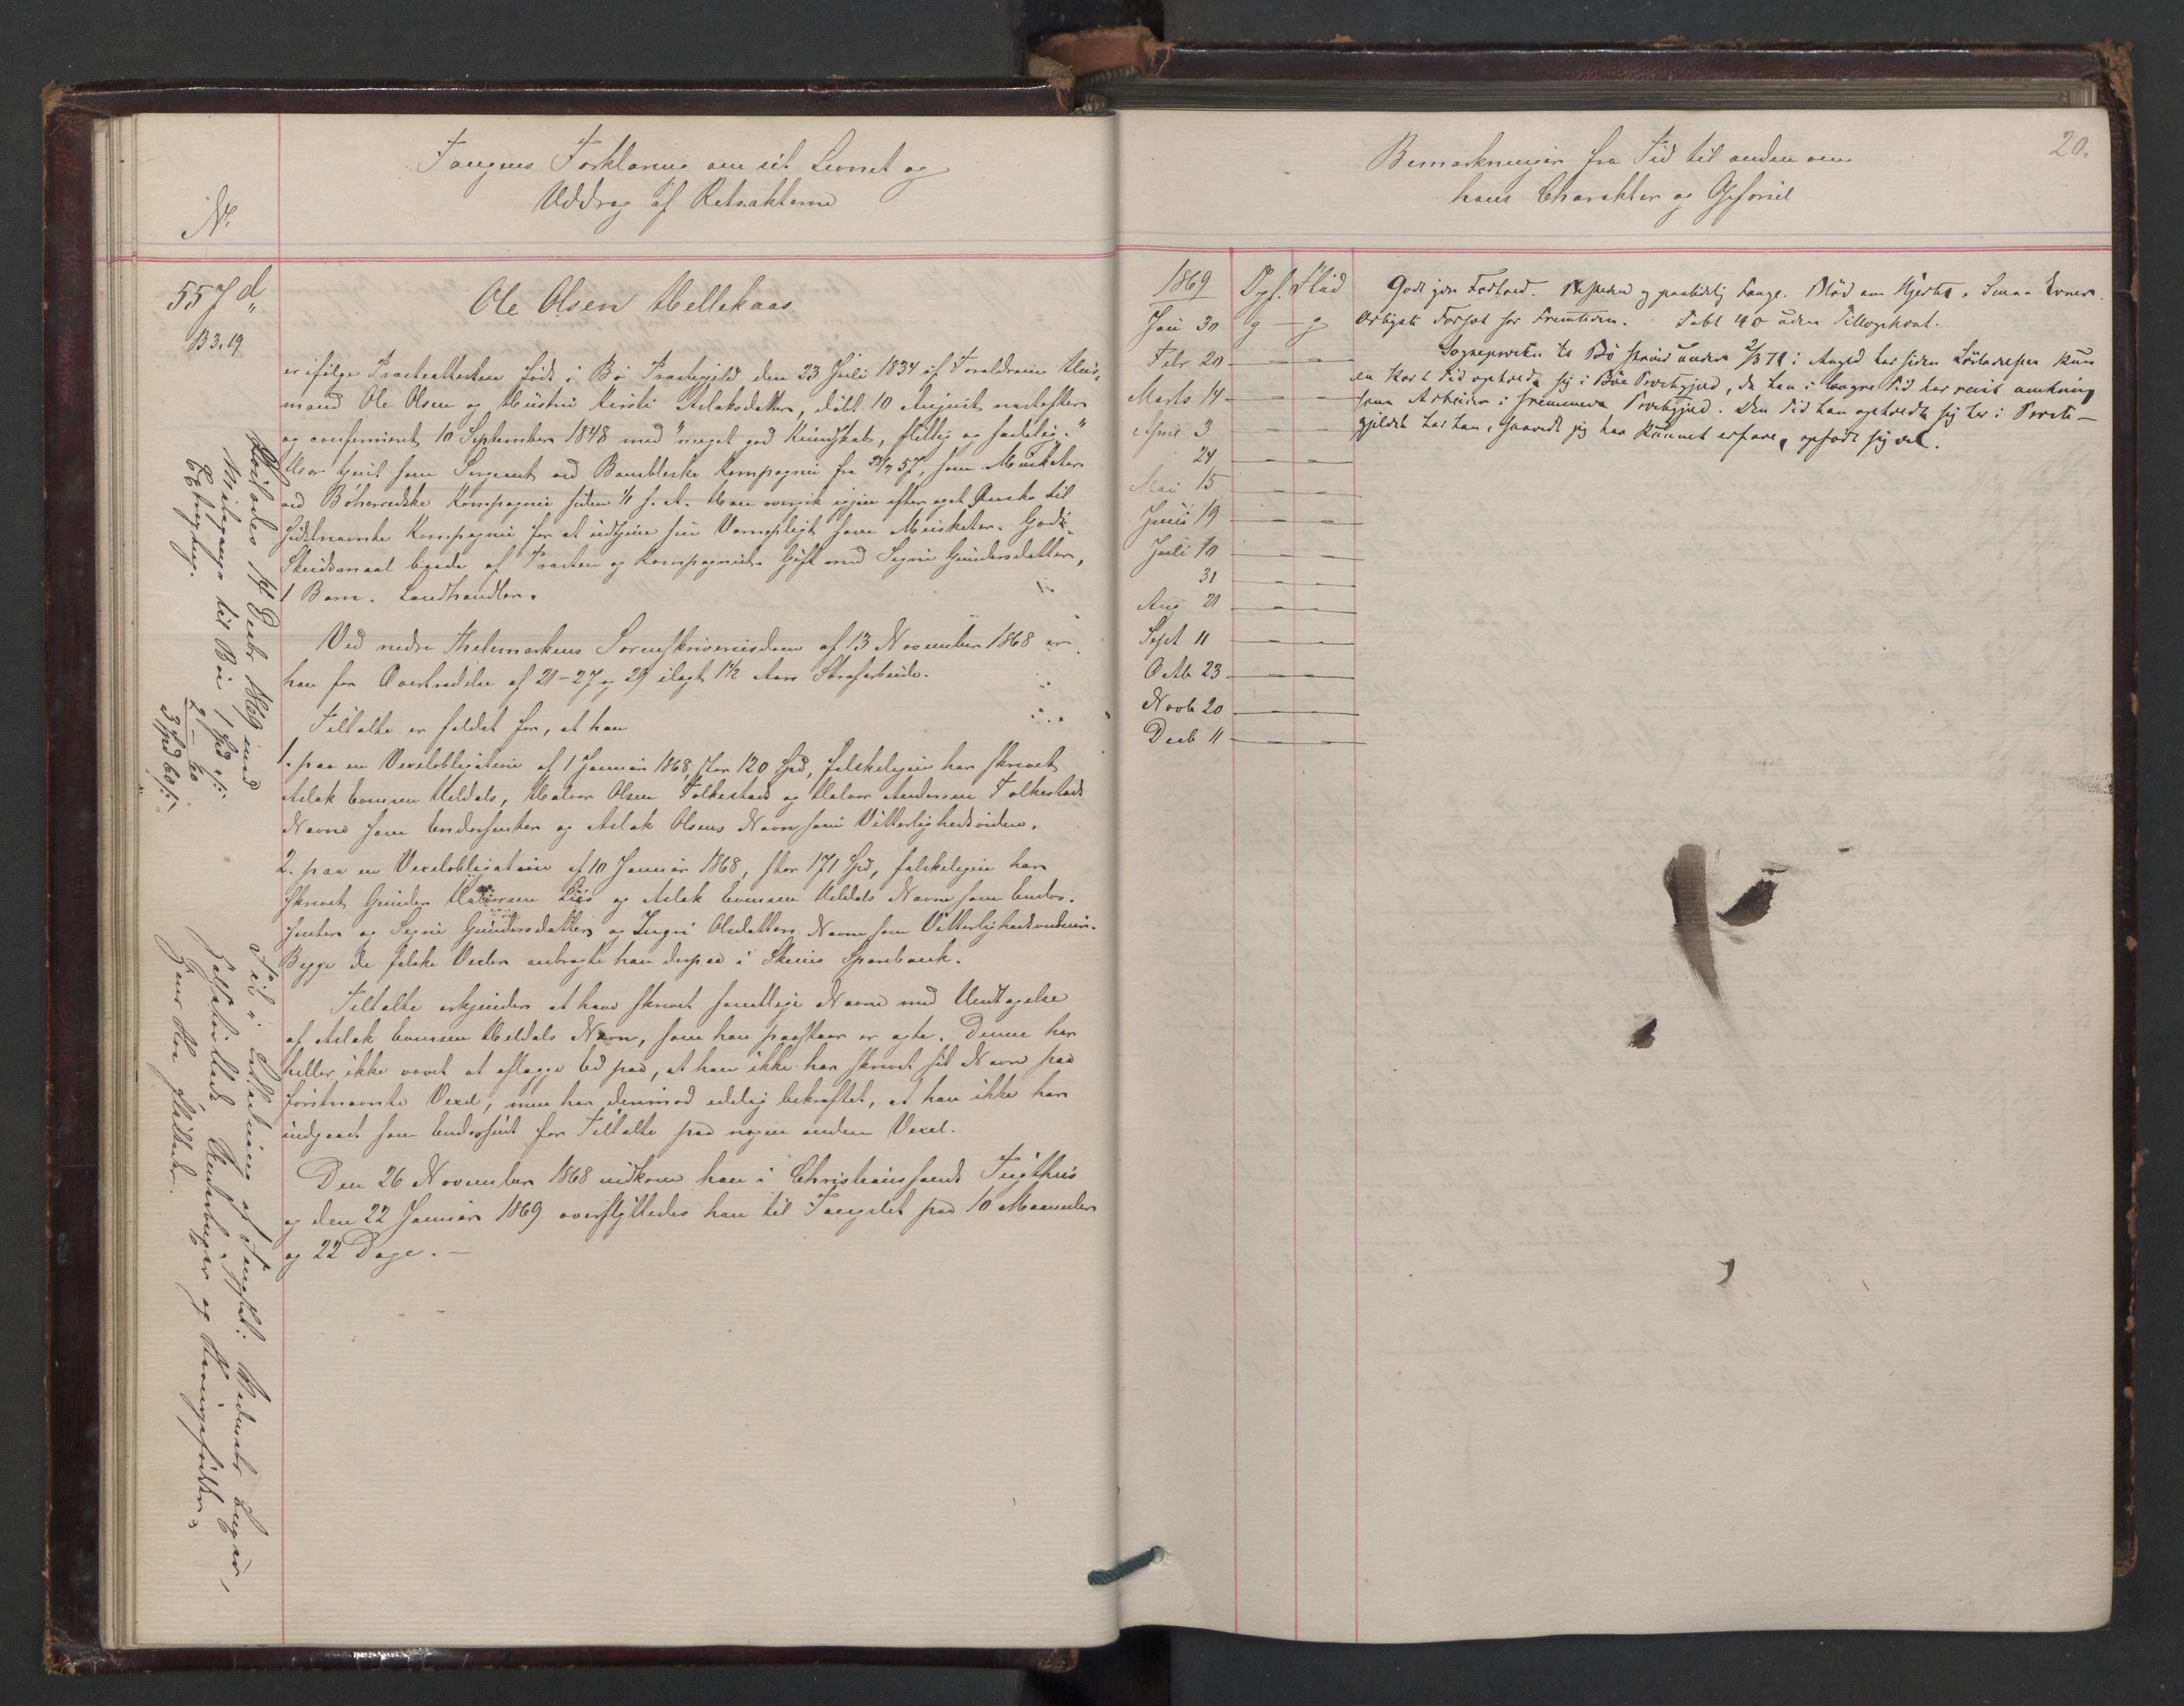 Fangens Forklaring om sit Levnet og
Uddrag af Retsakterne
No.
557 d
B 3.19
Ole Olsen Hellekaas
er ifølge Præsteattesten født i Bø Præstegjeld den 23 Juli 1834 af Forældrene Huus-
mand Ole Olsen og Hustru Kirsti Aslaksdatter, døbt 10 August næstefter
og confirmeret 10 September 1848 med "meget god Kundskab, flittig og sædelig."
Har tjent som Sergeant ved Bambleske Kompagni fra 57, som Musketer
ved Bøherredske Kompagni siden f. A. Han overgik igjen efter eget Ønske til
sidstnævnte Kompagni for at udtjene sin Værnepligt som Musketer. Godt
Skudsmaal baade af Præsten og Kompagniet. Gift med Signe Gundersdatter,
1 Barn. Landhandler.
Ved nedre Thelemarkens Sorenskriveriesdom af 13 November 1868 er
han for Overtrædelse af 21-27 og 29 ilagt 1½ Aars Strafarbeide.
Tiltalte er fældet for, at han
1. paa en Vexelobligation af 1 Januar 1868, stor 120 Spd, falskeligen har skrevet
Aslak Evensen Heldals, Halvor Olsen Folkestads og Halvor Andersen Folkestads
Navne som Endossenter og Aslak Olsens Navn som Vitterlighedsviden.
2. paa en Vexelobligation af 10 Januar 1868, stor 171 Spd, falskeligen har
skrevet Gunder Halvorsen Lies og Aslak Evensen Heldals Navne som Endos-
senter og Signe Gundersdatters og Ingri Olsdatters Navne som Vitterlighedsvidner.
Begge de falske Vexler anbragte han derpaa i Skiens Sparebank.
Tiltalte erkjender at have skrevet samtlige Navne med Undtagelse
af Aslak Evensen Heldals Navn, som han paastaar er ægte. Denne har
heller ikke vovet at aflægge Ed paa, at han ikke har skrevet sit Navn paa
førstnævnte Vexel, men har derimod edelig bekræftet, at han ikke har
indgaaet som Endossent for Tiltalte paa nogen anden Vexel.
Den 26 November 1868 indkom han i Christianssands Tugthus
og den 22 Januar 1869 overflyttedes han til Fængslet paa 10 Maaneder
og 22 Dage. —
Løslades 14 Decbr 1869 med
Milepenge til Bøe 1 Spd
2 - 60
3 Spd 60
Fik i Udlaan af Fængslet: Kedwalr Lugar,
og Havingshæfter
20.
Bemærkninger fra Tid til anden om
hans Charakter og Opførsel
1869 Opf. Flid
Jan 30 g — g
Febr 20
Marts 14
April 3
24
Mai 15
Juni 19
Juli 10
31
Aug 21
Sept 11
Octb 23
Novb 20
Decb 11
Godt gjort Forhold. og paalidelig Fange. Blød om Hjertet. Smaa Evner.
Forsæt for Fremtiden. Tabt 40 uden Tillægskost.
Sognepresten til Bø skriver under 2/3 71: Angjed har siden Løsladelsen kun
en kort Tid opholdt sig i Bøe Præstegjeld, da han i længre Tid har reist omkring
som Arbeider i fremmede Præstegjeld. Den Tid han opholdt sig her i Præste-
gjeldet har han, saavidt jeg har kunnet erfare, opført sig vel.